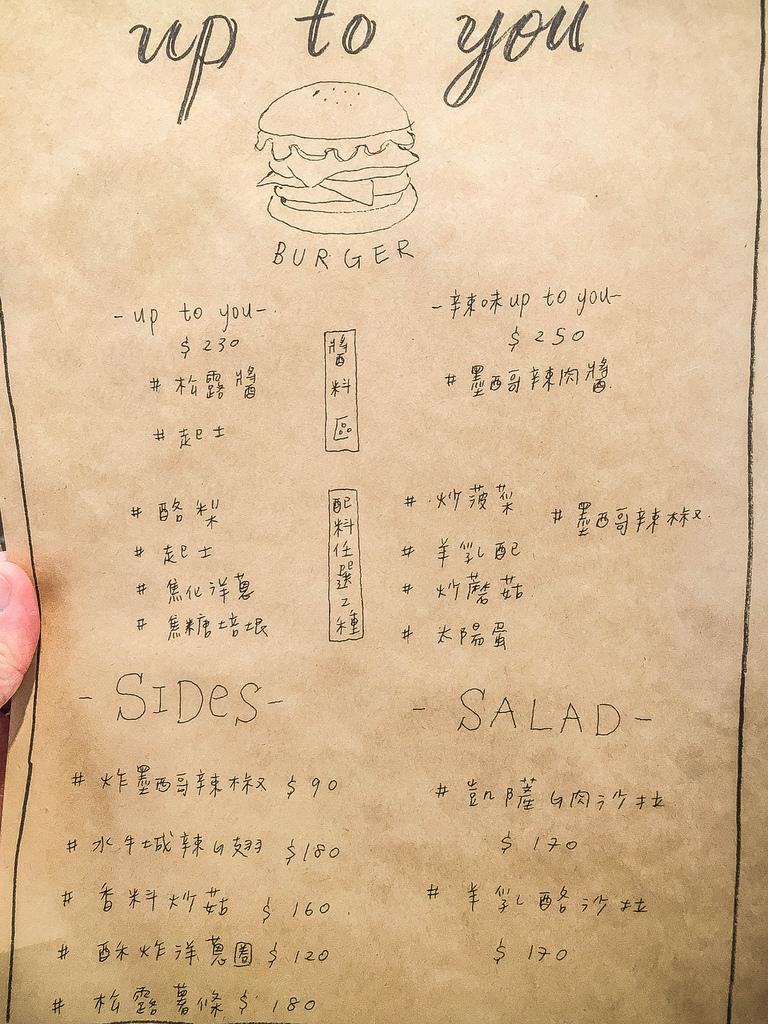 up to you
BURGER
-up to you-
$230
# 松露醬
# 起士
醬料區
-辣味up to you-
$250
# 墨西哥辣肉醬
# 酪梨
# 起士
# 焦化洋蔥
# 焦糖培根
配料任選2種
# 炒菠菜
# 羊乳酪
# 炒蘑菇
# 太陽蛋
# 墨西哥辣椒
-SIDes-
# 炸墨西哥辣椒 $90
# 水牛城辣G翅 $180
# 香料炒菇 $160
# 酥炸洋蔥圈 $120
# 松露薯條 $180
-SALAD-
# 凱薩G肉沙拉
$170
# 羊乳酪沙拉
$170